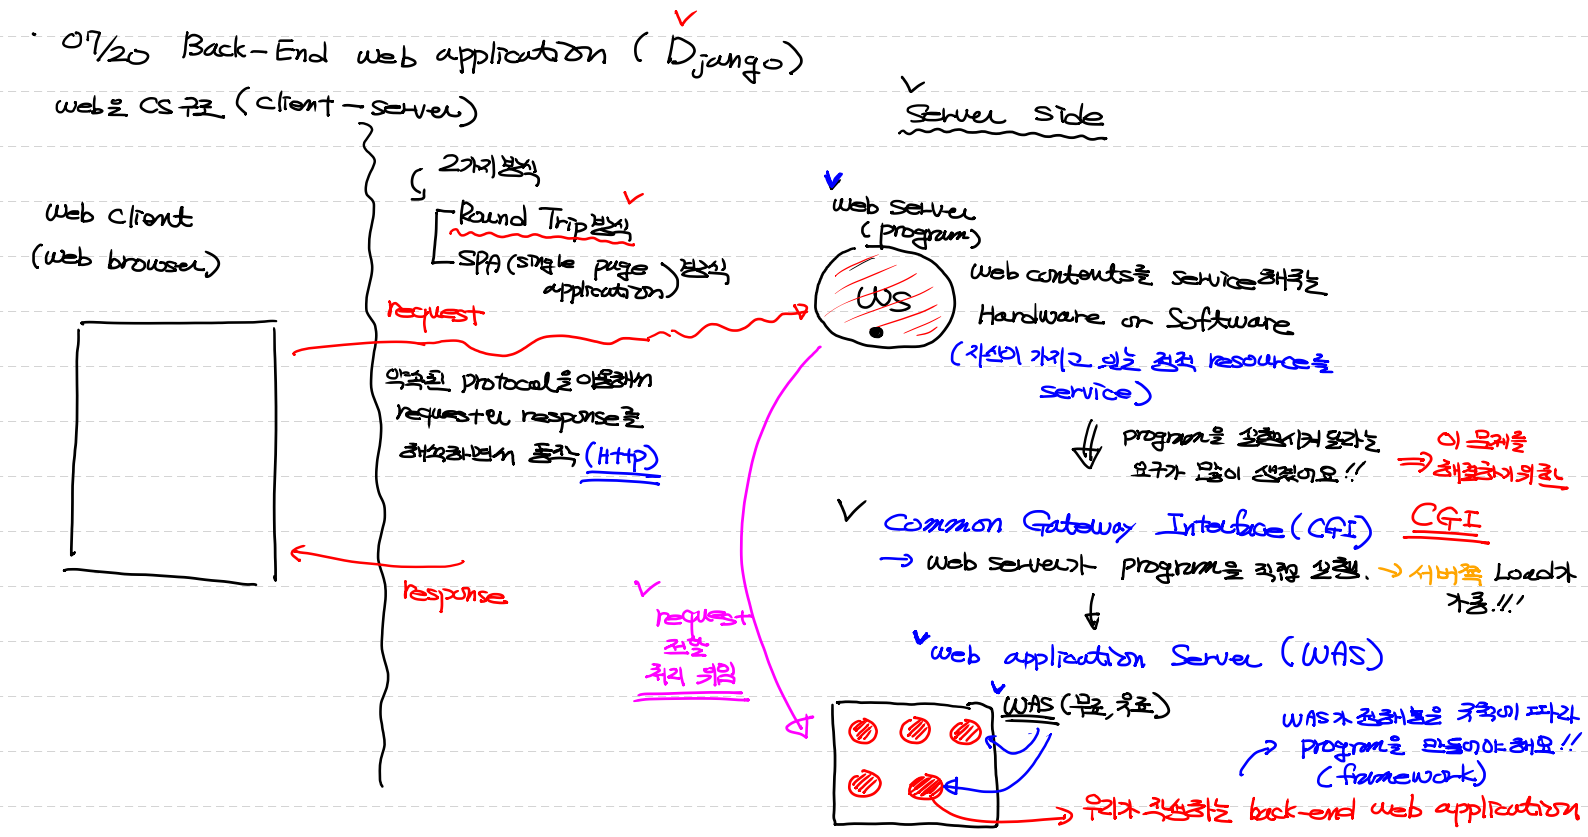 07/20 Back-End web application (Django)
web은 CS구조 (client-server)
Server side
2가지 방식
Round Trip방식
SPA(single page application)방식
web client
(web browser)
request
약속된 protocol을 이용해서
request와 response를
해석하면서 동작 (HTTP)
response
web server
(program)
WS
web contents를 service해주는
Hardware or Software
(자신이 가지고 있는 정적 resource를
service)
program을 실행시켜달라는
요구가 많이 생겼어요!!
이 문제를
해결하기위한
CGI
Common Gateway Interface(CGI)
→ web server가 program을 직접 실행. → 서버쪽 Load가
가중!!!
web application Server (WAS)
request
전달
처리 위임
WAS (무료,유료)
WAS가 정해놓은 규칙에 따라
program을 만들어야해요!!
(framework)
우리가 작성하는 back-end web application